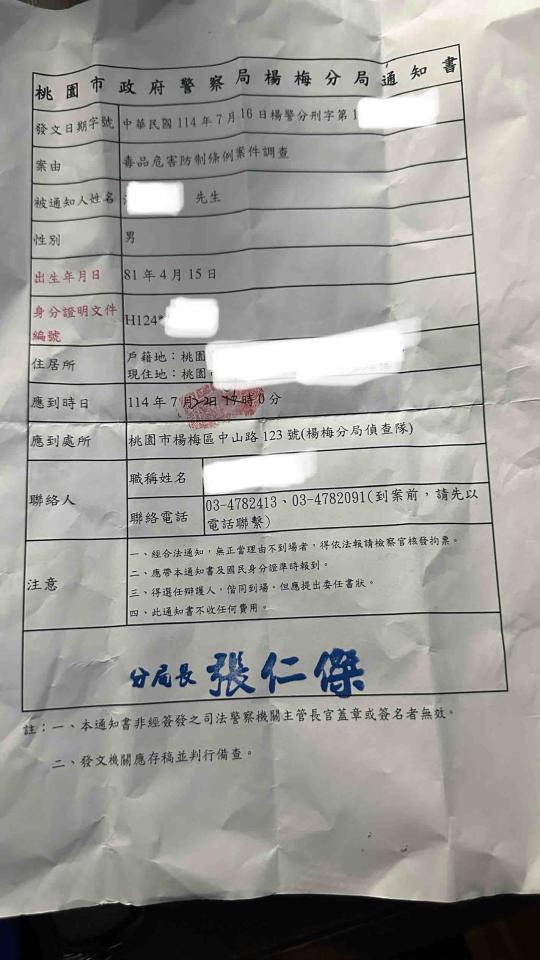 桃園市政府警察局楊梅分局通知書
發文日期字號 中華民國 114 年 7 月 16 日楊警分刑字第 1
案由 毒品危害防制條例案件調查
被通知人姓名 先生
性別 男
出生年月日 81 年 4 月 15 日
身分證明文件
編號 H124*
住居所 戶籍地：桃園
現住地：桃園
應到時日 114 年 7 月 日 時 0 分
應到處所 桃園市楊梅區中山路 123 號(楊梅分局偵查隊)
聯絡人 職稱姓名
聯絡電話 03-4782413、03-4782091(到案前，請先以
電話聯繫)
注意 一、經合法通知，無正當理由不到場者，得依法報請檢察官核發拘票。
二、應帶本通知書及國民身分證準時報到。
三、得選任辯護人，偕同到場。但應提出委任書狀。
四、此通知書不收任何費用。
分局長 張仁傑
註：一、本通知書非經簽發之司法警察機關主管長官蓋章或簽名者無效。
二、發文機關應存稿並判行備查。